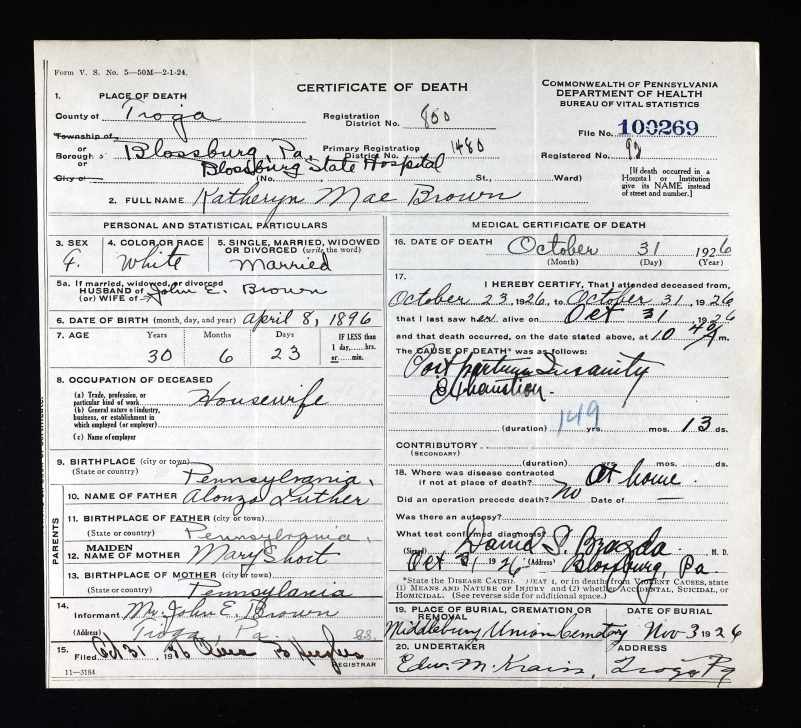 Form V. S. No. 5—50M—2-1-24.
CERTIFICATE OF DEATH
COMMONWEALTH OF PENNSYLVANIA
DEPARTMENT OF HEALTH
BUREAU OF VITAL STATISTICS
1. PLACE OF DEATH
County of Tioga
Registration District No. 800
File No. 100269
Township of
or
Borough of Blossburg, Pa.
Primary Registration District No. 1480
Registered No. 92
or
City of
Blossburg State Hospital
(No. St., Ward)
[If death occurred in a Hospital or Institution give its NAME instead of street and number.]
2. FULL NAME Katheryn Mae Brown
PERSONAL AND STATISTICAL PARTICULARS
3. SEX
F.
4. COLOR OR RACE
White
5. SINGLE, MARRIED, WIDOWED
OR DIVORCED (write the word)
Married
5a. If married, widowed, or divorced
HUSBAND of
(or) WIFE of John E. Brown
6. DATE OF BIRTH (month, day, and year) April 8, 1896
7. AGE Years Months Days
30 6 23
IF LESS than
1 day,....hrs.
or.....min.
8. OCCUPATION OF DECEASED
(a) Trade, profession, or
particular kind of work
Housewife
(b) General nature of industry,
business, or establishment in
which employed (or employer)
(c) Name of employer
9. BIRTHPLACE (city or town)
(State or country) Pennsylvania,
PARENTS
10. NAME OF FATHER Alonzo Luther
11. BIRTHPLACE OF FATHER (city or town)
(State or country) Pennsylvania,
12. MAIDEN NAME OF MOTHER Mary Short
13. BIRTHPLACE OF MOTHER (city or town)
(State or country) Pennsylvania
14.
Informant Mr. John E. Brown
(Address) Tioga, Pa.
15.
Filed Oct 31, 1926
REGISTRAR
11—3184
MEDICAL CERTIFICATE OF DEATH
16. DATE OF DEATH October 31 1926
(Month) (Day) (Year)
17. I HEREBY CERTIFY, That I attended deceased from,
October 23, 1926, to October 31, 1926
that I last saw her alive on Oct 31, 1926
and that death occurred, on the date stated above, at 10 40 A m.
The CAUSE OF DEATH* was as follows:
Post partum Insanity
Exhaustion.
149
(duration) yrs. mos. 13 ds.
CONTRIBUTORY
(SECONDARY)
(duration) yrs. mos. ds.
18. Where was disease contracted
if not at place of death? At home
Did an operation precede death? No Date of
Was there an autopsy?
What test confirmed diagnosis?
(Signed) David S. Brazda M. D.
Oct 31, 1926 (Address) Blossburg, Pa.
*State the DISEASE CAUSING DEATH, or in deaths from VIOLENT CAUSES, state
(1) MEANS AND NATURE OF INJURY and (2) whether ACCIDENTAL, SUICIDAL, OR
HOMICIDAL. (See reverse side for additional space.)
19. PLACE OF BURIAL, CREMATION OR REMOVAL
Middlebury Union Cemetery
DATE OF BURIAL
Nov 3 1926
20. UNDERTAKER
Edw. M. Kraiss,
ADDRESS
Tioga Pa